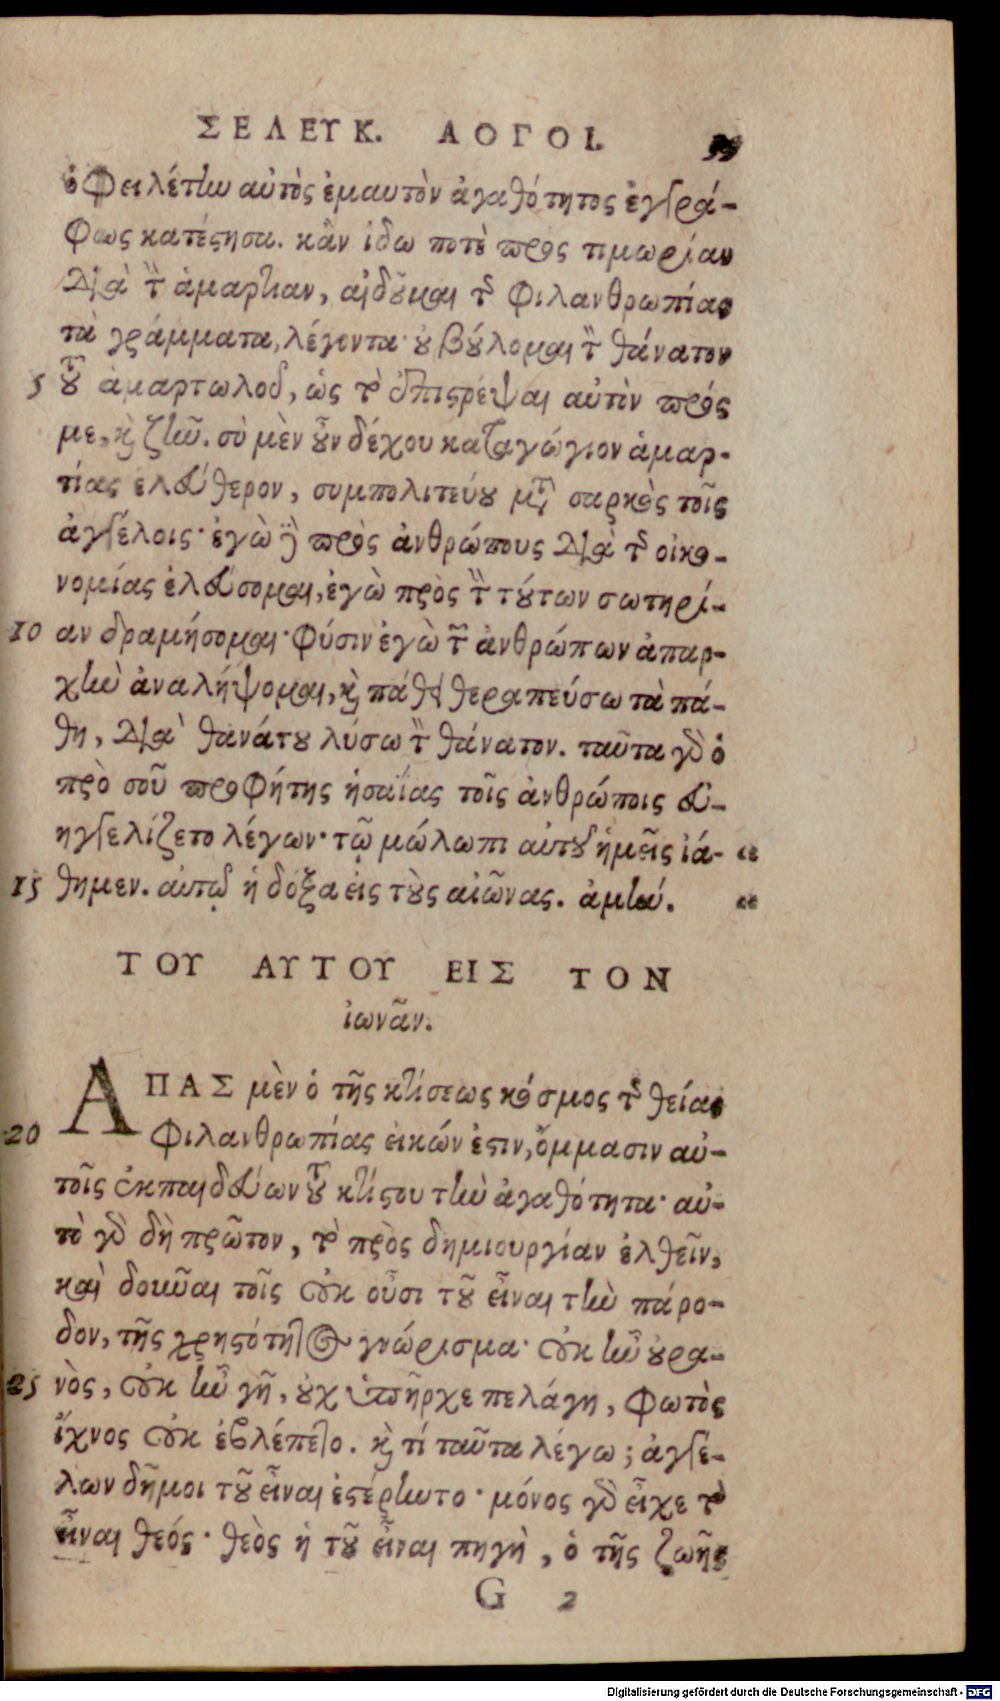 ΣΕΛΕΥΚ. ΛΟΓΟΙ. 99
ὀφειλέτην αὐτὸς ἐμαυτὸν ἀγαθότητος ἐγγρά-
φως κατέστησα. κἂν ἴδω ποτὲ πρὸς τιμωρίαν
διὰ τὴν ἁμαρτίαν, αἰδοῦμαι τῆς φιλανθρωπίας
τὰ γράμματα, λέγοντα· οὐ βούλομαι τὸν θάνατον
5 τοῦ ἁμαρτωλοῦ, ὡς τὸ ἐπιστρέψαι αὐτὸν πρός
με, καὶ ζῆν. σὺ μὲν οὖν δέχου καταγώγιον ἁμαρ-
τίας ἐλεύθερον, συμπολιτεύου μετὰ σαρκὸς τοῖς
ἀγγέλοις· ἐγὼ δὲ πρὸς ἀνθρώπους διὰ τῆς οἰκο-
νομίας ἐλεύσομαι, ἐγὼ πρὸς τὴν τούτων σωτηρί-
10 αν δραμήσομαι· φύσιν ἐγὼ τῶν ἀνθρώπων ἀπαρ-
χὴν ἀναλήψομαι, καὶ πάθει θεραπεύσω τὰ πά-
θη, διὰ θανάτου λύσω τὸν θάνατον. ταῦτα γὰρ ὁ
πρὸ σοῦ προφήτης ἡσαΐας τοῖς ἀνθρώποις εὐ-
ηγγελίζετο λέγων· τῷ μώλωπι αὐτοῦ ἡμεῖς ἰά- “
15 θημεν. αὐτῷ ἡ δόξα εἰς τοὺς αἰῶνας. ἀμήν. “
ΤΟΥ ΑΥΤΟΥ ΕΙΣ ΤΟΝ
ἰωνᾶν.
ΑΠΑΣ μὲν ὁ τῆς κτίσεως κόσμος τῆς θείας
20 φιλανθρωπίας εἰκών ἐστιν, ὄμμασιν αὐ-
τοῖς ἐκπαιδεύων τοῦ κτίστου τὴν ἀγαθότητα· αὐ-
τὸ γὰρ δὴ πρῶτον, τὸ πρὸς δημιουργίαν ἐλθεῖν,
καὶ δοῦναι τοῖς οὐκ οὖσι τοῦ εἶναι τὴν πάρο-
δον, τῆς χρηστότητος γνώρισμα· οὐκ ἦν οὐρα-
25 νὸς, οὐκ ἦν γῆ, οὐχ ὑπῆρχε πελάγη, φωτὸς
ἴχνος οὐκ ἐβλέπετο. καὶ τί ταῦτα λέγω; ἀγγέ-
λων δῆμοι τοῦ εἶναι ἐστέρηντο· μόνος γὰρ εἶχε τὸ
εἶναι θεός· θεὸς ἡ τοῦ εἶναι πηγὴ, ὁ τῆς ζωῆς
G 2
Digitalisierung gefördert durch die Deutsche Forschungsgemeinschaft - DFG